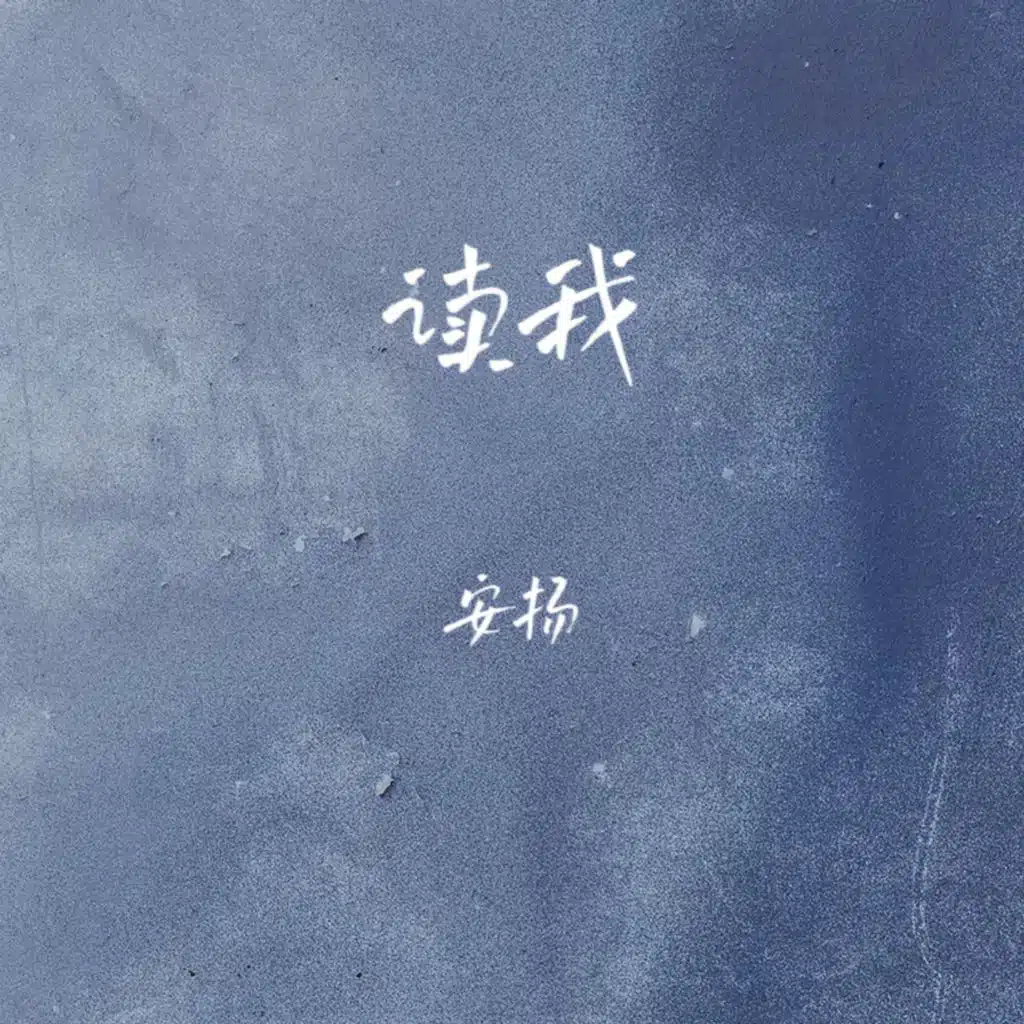 读我
安扬